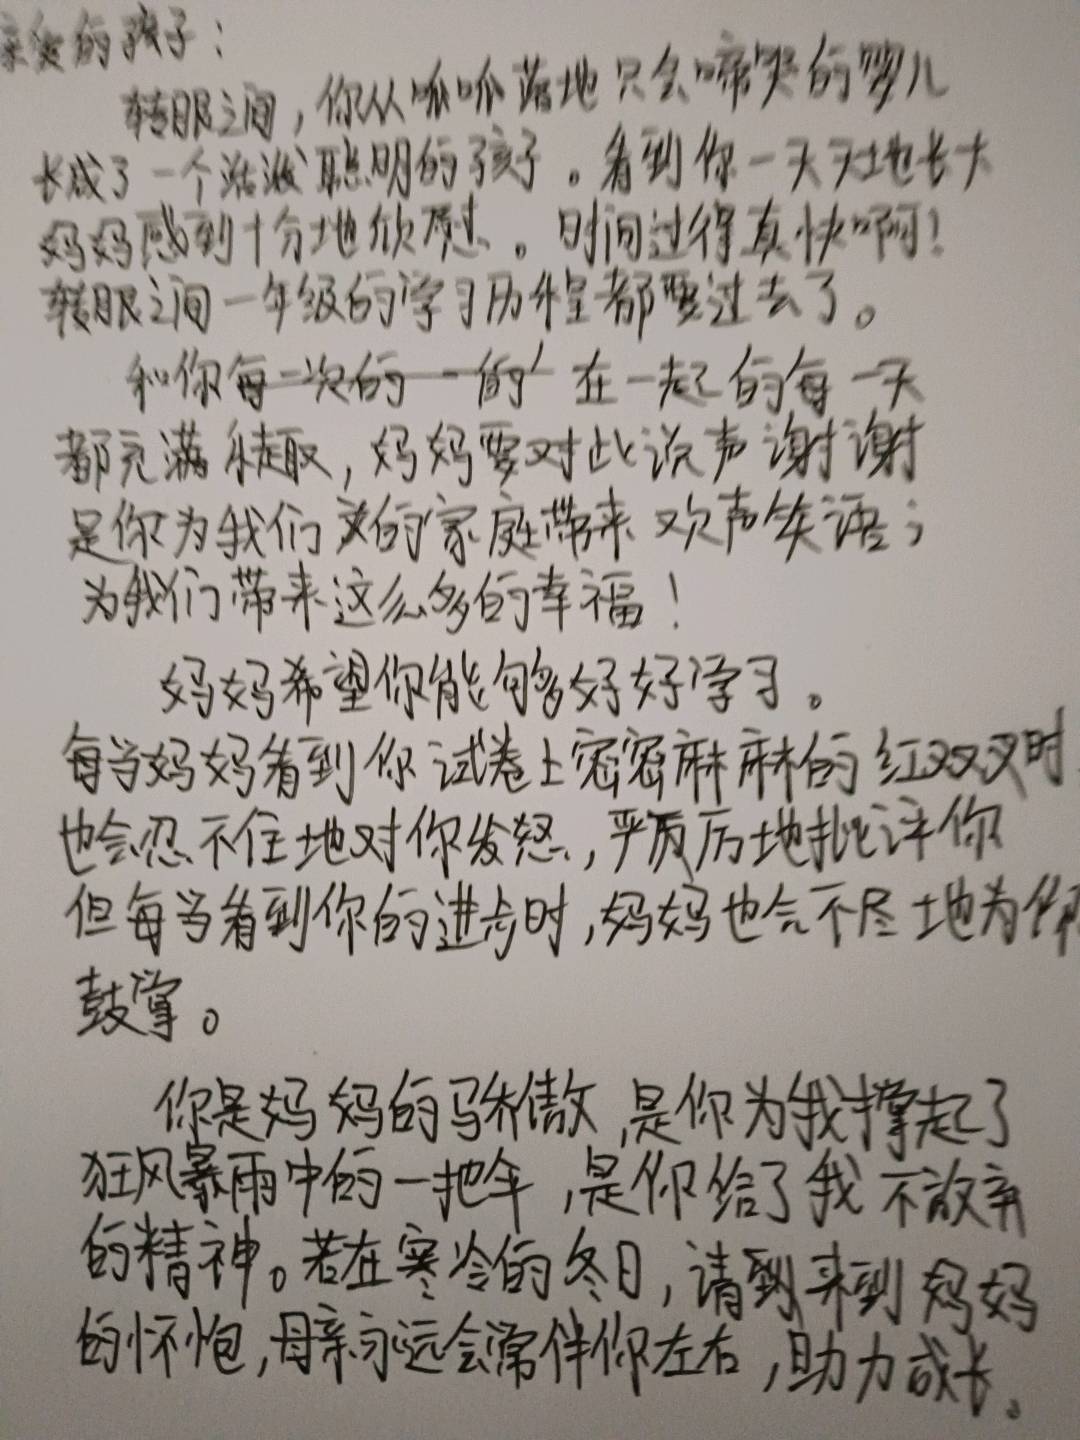 亲爱的孩子：
转眼之间，你从呱呱落地只会啼哭的婴儿
长成了一个活泼聪明的孩子。看到你一天天地长大
妈妈感到十分地欣慰。时间过得真快啊！
转眼之间一年级的学习历程都要过去了。
和你在一起的每一天
都充满乐趣，妈妈要对此说声谢谢
是你为我们的家庭带来欢声笑语；
为我们带来这么多的幸福！
妈妈希望你能够好好学习。
每当妈妈看到你试卷上密密麻麻的红双双叉时
也会忍不住地对你发怒，严厉地批评你
但每当看到你的进步时，妈妈也会不尽地为你
鼓掌。
你是妈妈的骄傲，是你为我撑起了
狂风暴雨中的一把伞，是你给了我不放弃
的精神。若在寒冷的冬日，请到来到妈妈
的怀抱，母亲永远会常伴你左右，助力成长。